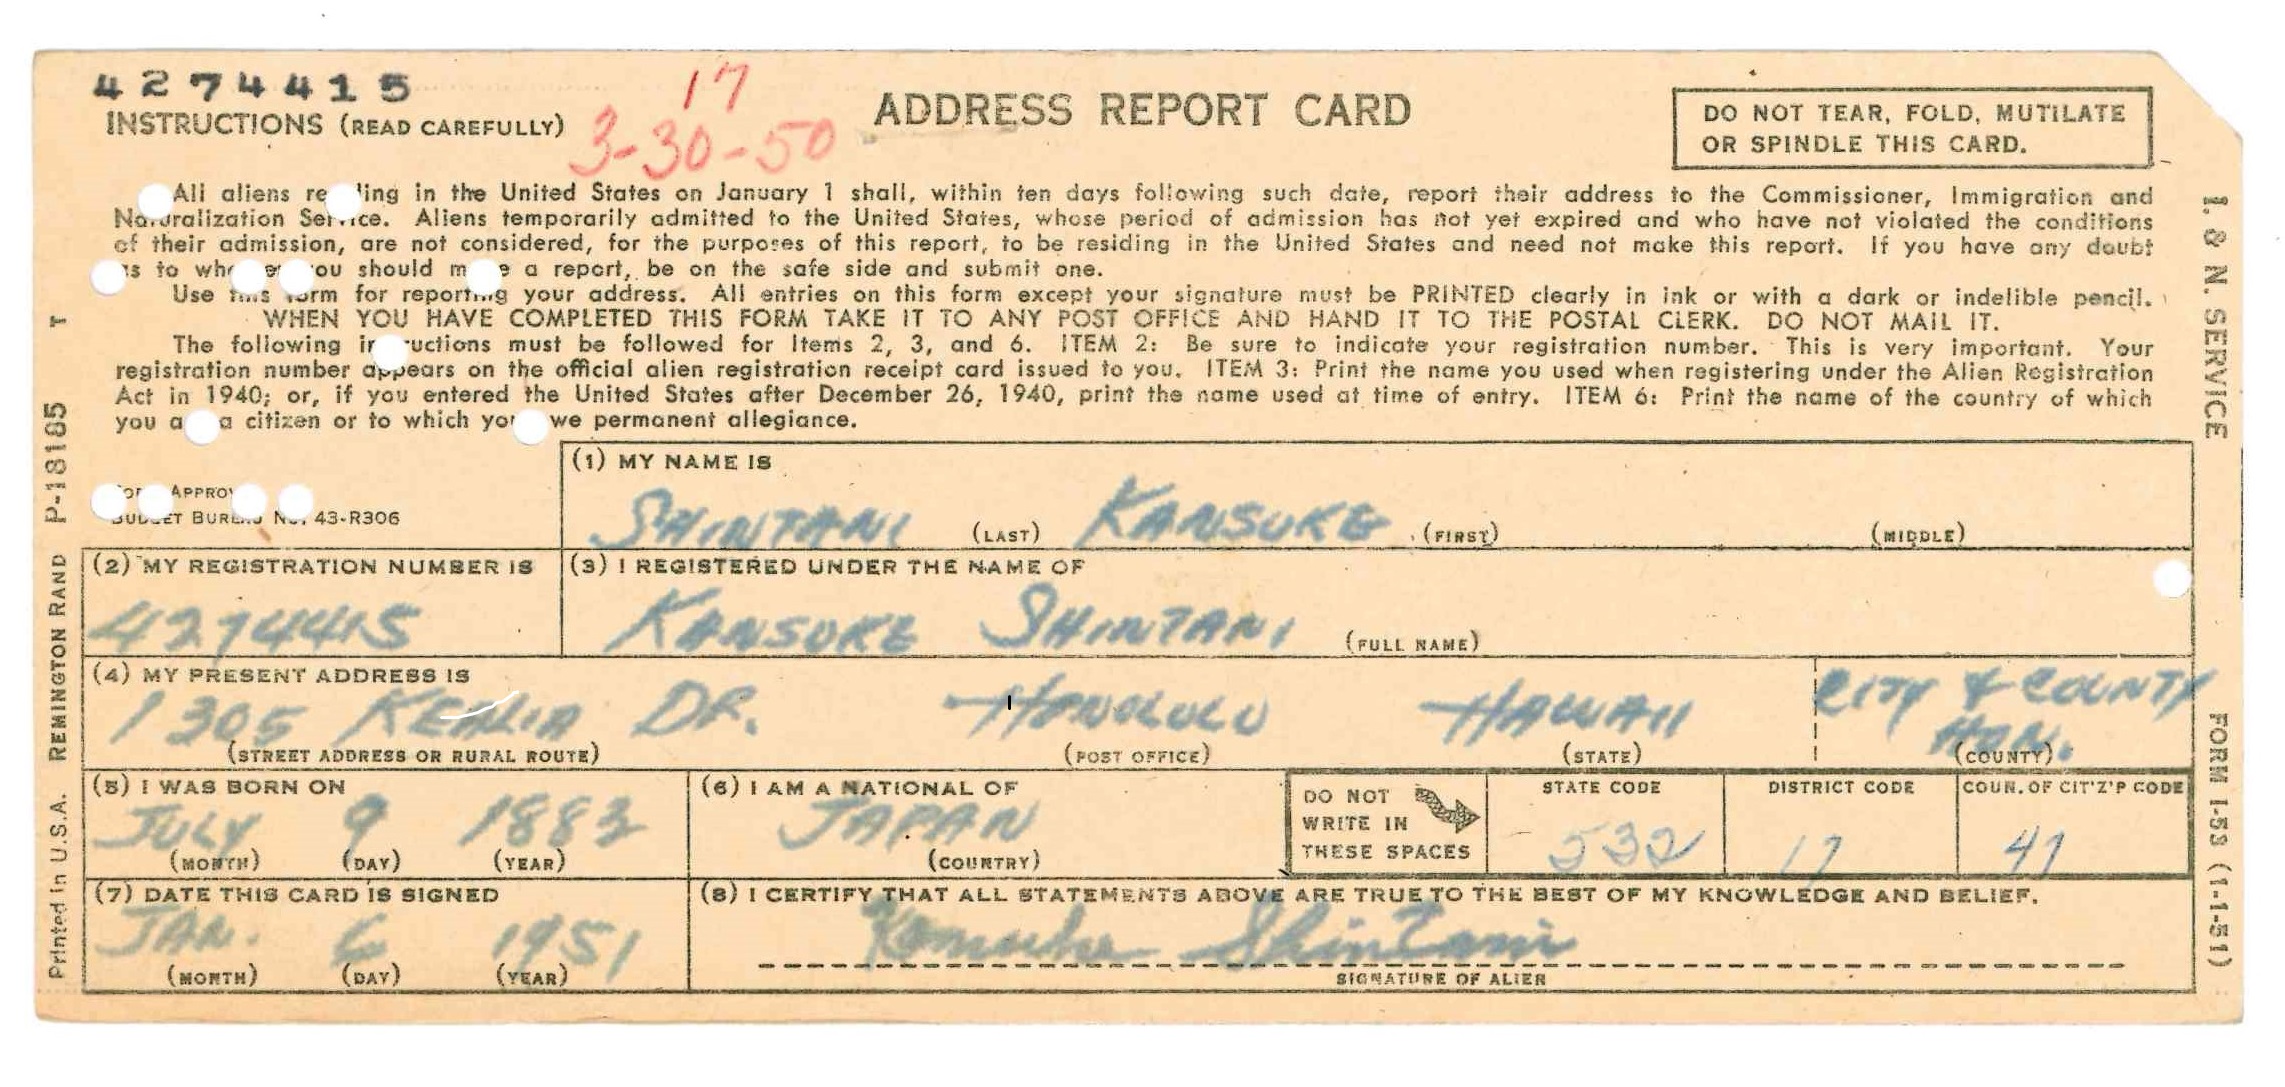 4274415
17
3-30-50
ADDRESS REPORT CARD
DO NOT TEAR, FOLD, MUTILATE
OR SPINDLE THIS CARD.
INSTRUCTIONS (READ CAREFULLY)
All aliens re ing in the United States on January 1 shall, within ten days following such date, report their address to the Commissioner, Immigration and
Naturalization Service. Aliens temporarily admitted to the United States, whose period of admission has not yet expired and who have not violated the conditions
of their admission, are not considered, for the purposes of this report, to be residing in the United States and need not make this report. If you have any doubt
as to whe you should make a report, be on the safe side and submit one.
Use this form for reporting your address. All entries on this form except your signature must be PRINTED clearly in ink or with a dark or indelible pencil.
WHEN YOU HAVE COMPLETED THIS FORM TAKE IT TO ANY POST OFFICE AND HAND IT TO THE POSTAL CLERK. DO NOT MAIL IT.
The following in uctions must be followed for Items 2, 3, and 6. ITEM 2: Be sure to indicate your registration number. This is very important. Your
registration number appears on the official alien registration receipt card issued to you. ITEM 3: Print the name you used when registering under the Alien Registration
Act in 1940; or, if you entered the United States after December 26, 1940, print the name used at time of entry. ITEM 6: Print the name of the country of which
you a a citizen or to which you we permanent allegiance.
Form Approv
Budget Bureau No. 43-R306
(1) MY NAME IS
SHINTANI (LAST) KANSUKE (FIRST) (MIDDLE)
(2) MY REGISTRATION NUMBER IS
4274415
(3) I REGISTERED UNDER THE NAME OF
KANSUKE SHINTANI (FULL NAME)
(4) MY PRESENT ADDRESS IS
1305 KEALIA DR. HONOLULU HAWAII CITY & COUNTY
HON.
(STREET ADDRESS OR RURAL ROUTE) (POST OFFICE) (STATE) (COUNTY)
(5) I WAS BORN ON
JULY 9 1883
(MONTH) (DAY) (YEAR)
(6) I AM A NATIONAL OF
JAPAN
(COUNTRY)
DO NOT
WRITE IN
THESE SPACES
STATE CODE
532
DISTRICT CODE
17
COUN. OF CIT'Z'P CODE
47
(7) DATE THIS CARD IS SIGNED
JAN. 6 1951
(MONTH) (DAY) (YEAR)
(8) I CERTIFY THAT ALL STATEMENTS ABOVE ARE TRUE TO THE BEST OF MY KNOWLEDGE AND BELIEF.
Kansuke Shintani
SIGNATURE OF ALIEN
Printed in U.S.A. REMINGTON RAND P-18185 T
I. & N. SERVICE FORM I-53 (1-1-51)